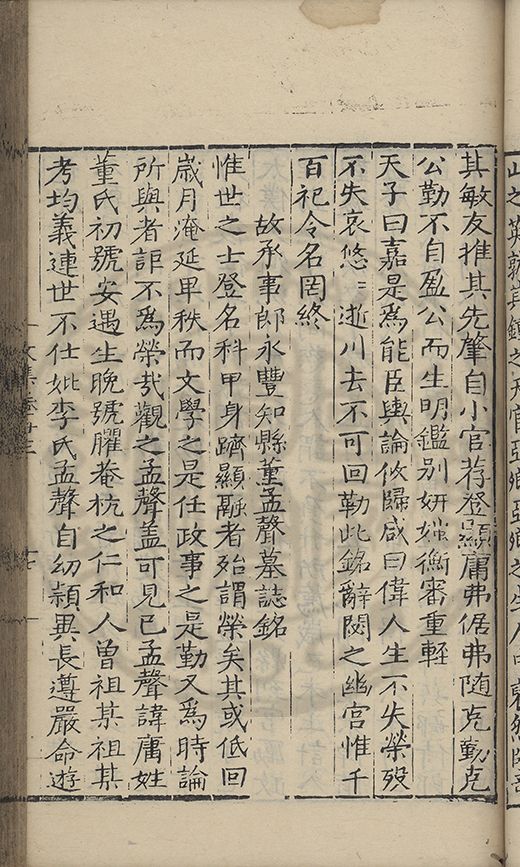 其敏友推其先肇自小官荐登顯庸弗倨弗随克勤克
公勤不自盈公而生明鑑别妍媸衡審重輕
天子曰嘉是爲能臣輿論攸歸咸曰偉人生不失榮殁
不失哀悠〻逝川去不可回勒此銘辭閟之幽宫惟千
百祀令名罔終
故承事郎永豐知縣董孟聲墓誌銘
惟世之士登名科甲身躋顯融者殆謂榮矣其或低回
歲月淹延卑秩而文學之是任政事之是勤又爲時論
所與者詎不爲榮㢤觀之孟聲盖可見已孟聲諱庸姓
董氏初號安遇生晚號臞菴杭之仁和人曾祖某祖某
考均義連世不仕妣李氏孟聲自幼頴異長遵嚴命遊
文集卷十三